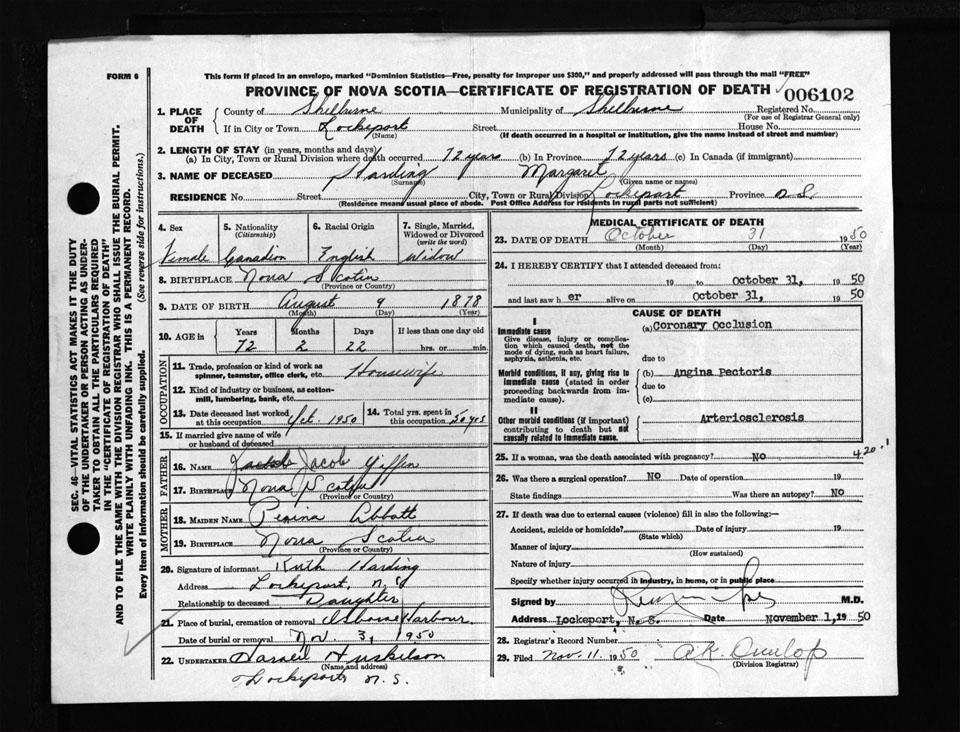 FORM 6
This form if placed in an envelope, marked "Dominion Statistics—Free, penalty for improper use $300," and properly addressed will pass through the mail "FREE"
PROVINCE OF NOVA SCOTIA—CERTIFICATE OF REGISTRATION OF DEATH 006102
1. PLACE OF DEATH
County of Shelburne Municipality of Shelburne Registered No.
(For use of Registrar General only)
If in City or Town Lockeport Street House No.
(Name) (If death occurred in a hospital or institution, give the name instead of street and number)
2. LENGTH OF STAY (in years, months and days)
(a) In City, Town or Rural Division where death occurred 72 years (b) In Province 72 years (c) In Canada (if immigrant)
3. NAME OF DECEASED Harding Margaret
(Surname) (Given name or names)
RESIDENCE No Street City, Town or Rural Division Lockeport Province N.S.
(Residence means usual place of abode. Post Office Address for residents in rural parts not sufficient)
4. Sex Female
5. Nationality (Citizenship) Canadian
6. Racial Origin English
7. Single, Married, Widowed or Divorced (write the word) Widow
8. BIRTHPLACE Nova Scotia
(Province or Country)
9. DATE OF BIRTH August 9 1878
(Month) (Day) (Year)
10. AGE in Years Months Days If less than one day old
72 2 22 hrs. or min.
OCCUPATION
11. Trade, profession or kind of work as spinner, teamster, office clerk, etc. Housewife
12. Kind of industry or business, as cotton-mill, lumbering, bank, etc.
13. Date deceased last worked at this occupation Oct. 1950
14. Total yrs. spent in this occupation 50 yrs
15. If married give name of wife or husband of deceased
FATHER
16. NAME Jacob Giffin
17. BIRTHPLACE Nova Scotia
(Province or Country)
MOTHER
18. MAIDEN NAME Abbott
19. BIRTHPLACE Nova Scotia
(Province or Country)
20. Signature of informant Ruth Harding
Address Lockeport, N.S
Relationship to deceased Daughter
21. Place of burial, cremation or removal Osborne Harbour
Date of burial or removal Nov. 3, 1950
22. UNDERTAKER Huskilson
(Name and address)
Lockeport N.S.
MEDICAL CERTIFICATE OF DEATH
23. DATE OF DEATH October 31 1950
(Month) (Day) (Year)
24. I HEREBY CERTIFY that I attended deceased from:
19 to October 31, 1950
and last saw h er alive on October 31, 1950
CAUSE OF DEATH
I
Immediate cause (a) Coronary Occlusion
Give disease, injury or complication which caused death, not the mode of dying, such as heart failure, asphyxia, asthenia, etc.
due to
Morbid conditions, if any, giving rise to immediate cause (stated in order proceeding backwards from immediate cause).
(b) Angina Pectoris
due to
(c)
II
Other morbid conditions (if important) contributing to death but not causally related to immediate cause.
Arteriosclerosis
25. If a woman, was the death associated with pregnancy? NO 420.1
26. Was there a surgical operation? NO Date of operation 19
State findings Was there an autopsy? NO
27. If death was due to external causes (violence) fill in also the following:—
Accident, suicide or homicide? Date of injury 19
(State which)
Manner of injury
(How sustained)
Nature of injury
Specify whether injury occurred in industry, in home, or in public place
Signed by M.D.
Address Lockeport, N. S. Date November 1, 1950
28. Registrar's Record Number
29. Filed Nov. 11. 1950 A.K. Dunlop
(Division Registrar)
SEC. 46—VITAL STATISTICS ACT MAKES IT THE DUTY OF THE UNDERTAKER OR PERSON ACTING AS UNDERTAKER TO OBTAIN ALL THE PARTICULARS REQUIRED IN THE "CERTIFICATE OF REGISTRATION OF DEATH" AND TO FILE THE SAME WITH THE DIVISION REGISTRAR WHO SHALL ISSUE THE BURIAL PERMIT.
WRITE PLAINLY WITH UNFADING INK. THIS IS A PERMANENT RECORD.
Every item of information should be carefully supplied. (See reverse side for instructions.)